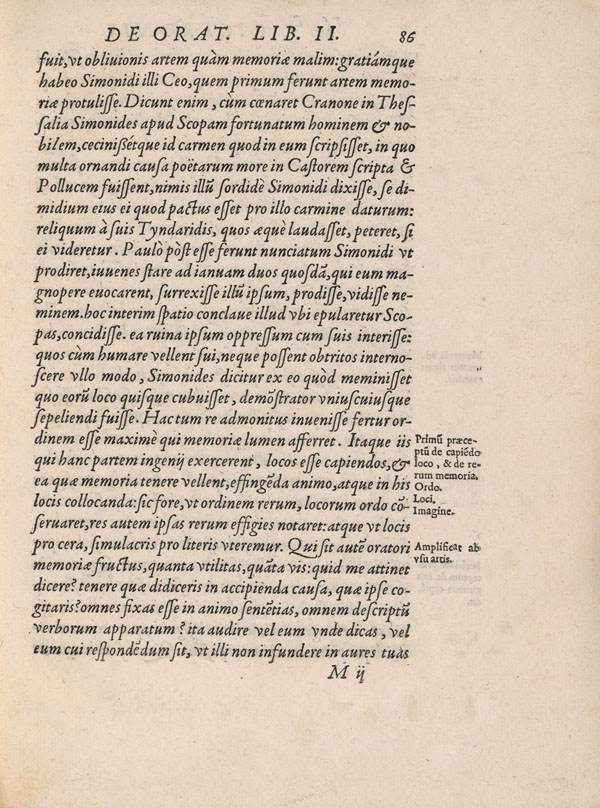 DE ORAT. LIB. II. 86
fuit, vt obliuionis artem quàm memoriæ malim: gratiámque
habeo Simonidi illi Ceo, quem primum ferunt artem memo-
riæ protulisse. Dicunt enim, cum cœnaret Cranone in Thes-
salia Simonides apud Scopam fortunatum hominem & no-
bilem, cecinißétque id carmen quod in eum scripsisset, in quo
multa ornandi causa poëtarum more in Castorem scripta &
Pollucem fuissent, nimis illū sordidè Simonidi dixisse, se di-
midium eius ei quod pactus esset pro illo carmine daturum:
reliquum à suis Tyndaridis, quos æquè laudasset, peteret, si
ei videretur. Paulò pòst esse ferunt nunciatum Simonidi vt
prodiret, iuuenes stare ad ianuam duos quosdā, qui eum ma-
gnopere euocarent, surrexisse illū ipsum, prodisse, vidisse ne-
minem. hoc interim spatio conclaue illud vbi epularetur Sco-
pas, concidisse. ea ruina ipsum oppressum cum suis interisse:
quos cùm humare vellent sui, neque possent obtritos interno-
scere vllo modo, Simonides dicitur ex eo quòd meminisset
quo eorū loco quisque cubuisset, demōstrator vniuscuiusque
sepeliendi fuisse. Hac tum re admonitus inuenisse fertur or-
dinem esse maximè qui memoriæ lumen afferret. Itaque iis
qui hanc partem ingenij exercerent, locos esse capiendos, &
ea quæ memoria tenere vellent, effingēda animo, atque in his
locis collocanda: sic fore, vt ordinem rerum, locorum ordo cō-
seruaret, res autem ipsas rerum effigies notaret: atque vt locis
pro cera, simulacris pro literis vteremur. Qui sit autē oratori
memoriæ fructus, quanta vtilitas, quāta vis: quid me attinet
dicere? tenere quæ didiceris in accipienda causa, quæ ipse co-
gitaris? omnes fixas esse in animo sentētias, omnem descriptū
verborum apparatum? ita audire vel eum vnde dicas, vel
eum cui respondēdum sit, vt illi non infundere in aures tuas
M ij
Primū præce-
ptū de capiēdo
loco, & de re-
rum memoria.
Ordo.
Loci.
Imagine.
Amplificat ab
vsu artis.